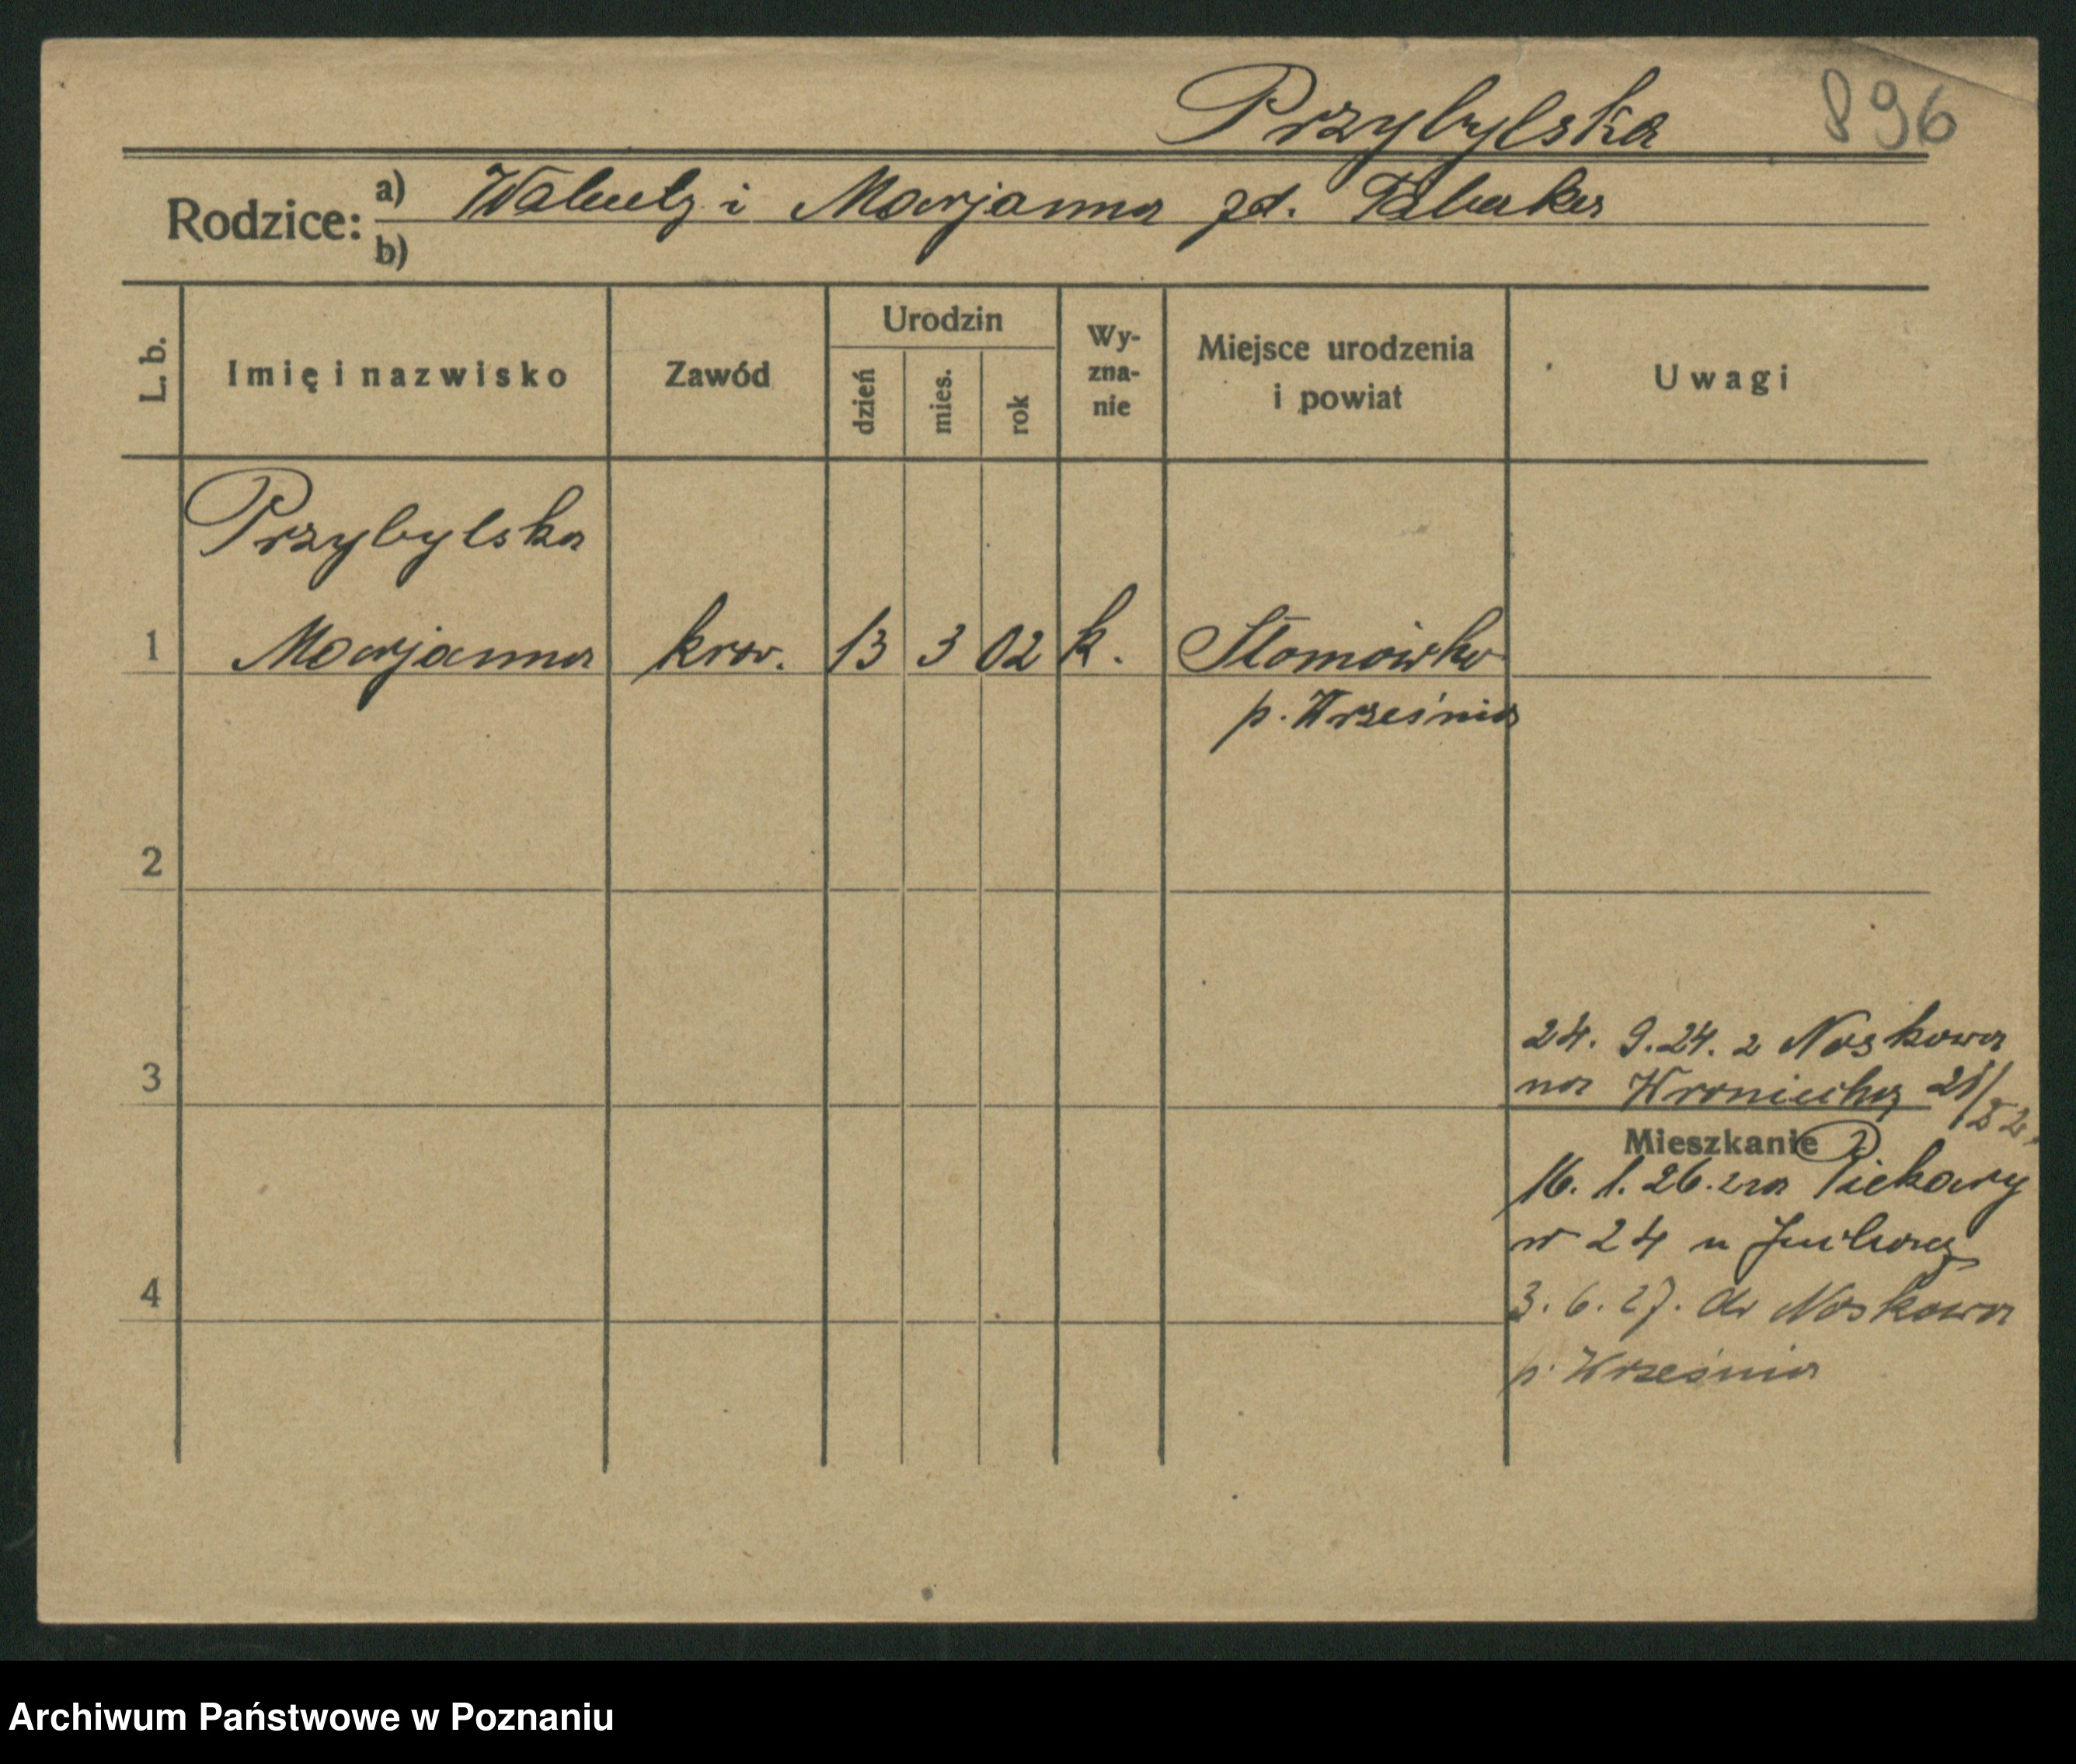 Przybylska 896
Rodzice: a) i Marjanna zd.
b)
L. b. Imię i nazwisko Zawód Urodzin dzień mies. rok Wy-zna-nie Miejsce urodzenia i powiat Uwagi
Przybylska
1 Marjanna kraw. 13 3 02 k. Słomówko
p. Września
2
24. 9. 24. z Noskowa
3 na Wroniecką
Mieszkanie
16. 1. 26. na Piekary
w 24 u
4 3. 6. 27. do Noskowa
p. Września
Archiwum Państwowe w Poznaniu